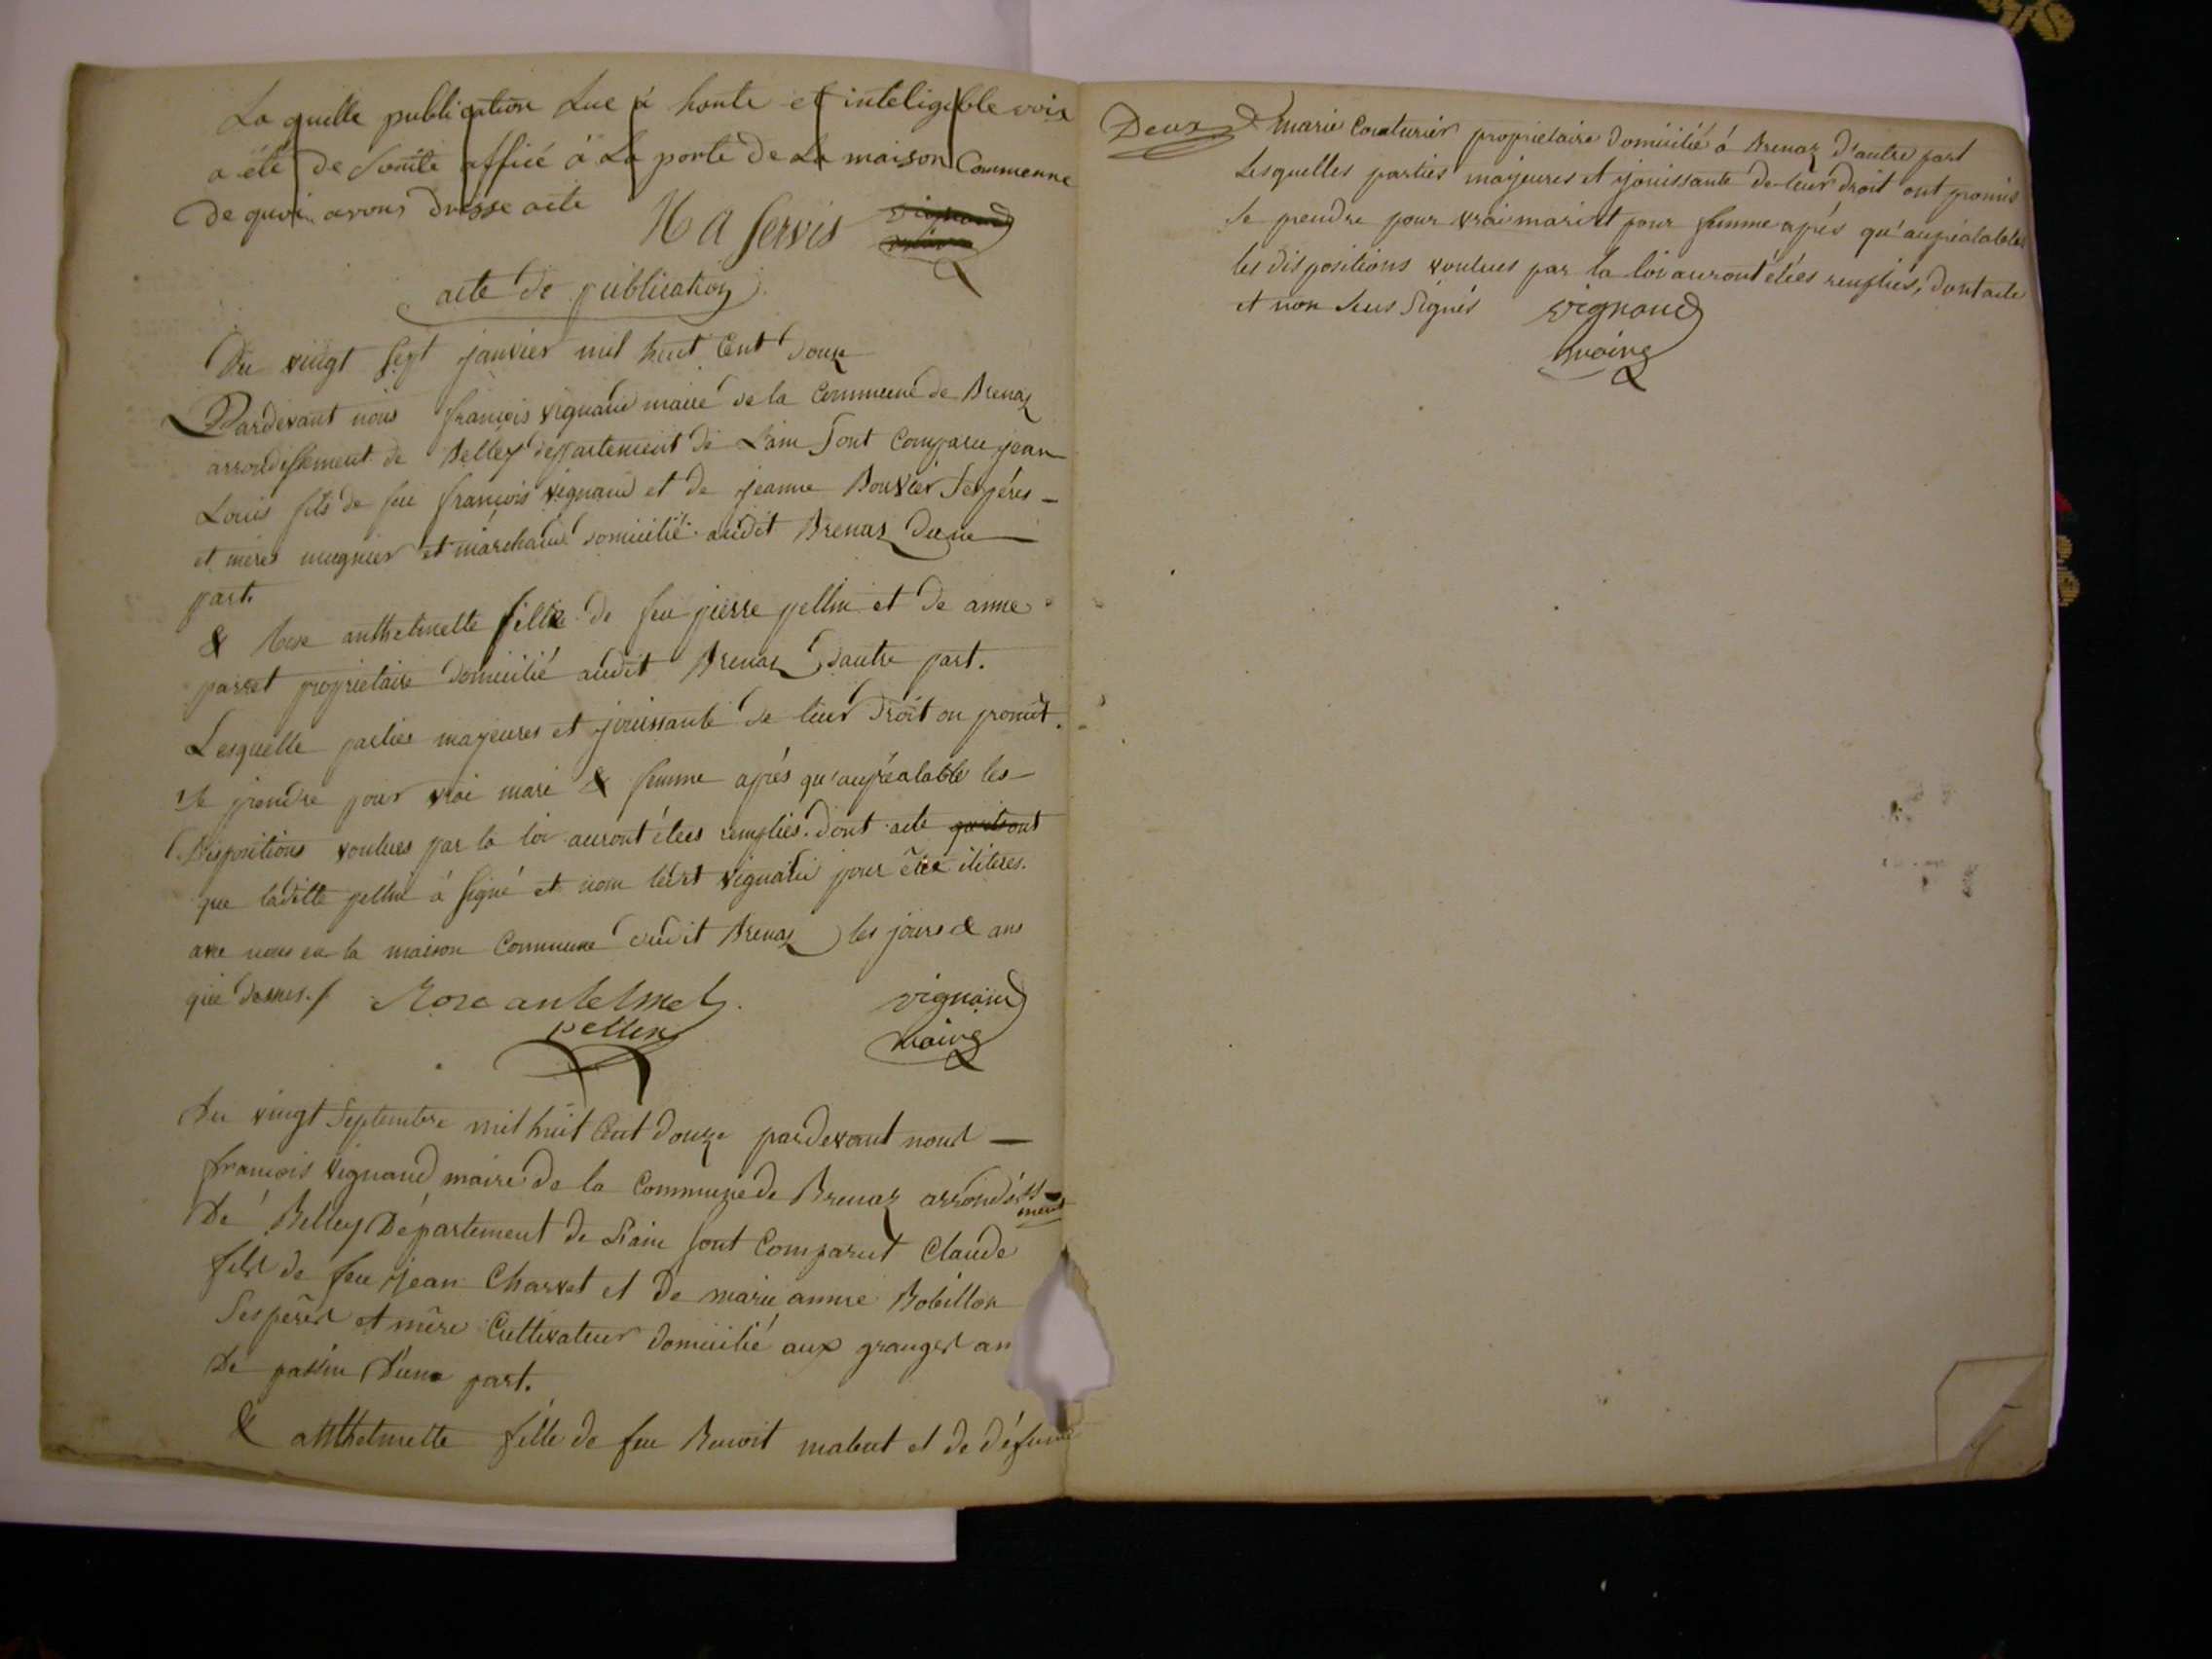 La quelle publication Lue à honte et inteligible voix
a été de Somite afficé à La porte de La maison Commenne
de quoi avons dresse acte Il A Servis vignaud
maire
acte de publication
Du vingt Sept janvier mil huit Cent douze
Pardevant nous françois vignaud maire de la Commune de Brenaz
arrondissement de Belley departement de L'ain Sont Comparu jean
Louis fils de feu françois vignaud et de jeanne Bouvier Ses péres
et méres mugnier et marchand domicilié audit Brenaz d'une
part.
& Rose anthelmette fille de feu pierre pellin et de anne
passet proprietaire domicilié audit Brenaz d'autre part.
Lesquelle parties majeures et jouissante de leur droit on promit
Se prendre pour vrai mari & femme aprés qu'aupréalable les
Dispositions voulues par la loi auront étées remplies. dont acte qu'ils ont
que laditte pellin à Signé et nom ledit vignaud pour être iliteres.
avec nous en la maison Commune dudit Brenaz les jours & ans
que dessus./ Rose antelmet vignaud
pellin maire
Du vingt Septembre mil huit Cent douze pardevant nous
françois vignaud maire de la Commune de Brenaz arrondiss
ment
De Belley Département de L'ain Sont Comparut Claude
fils de feu jean Charvet et de marie anne Bobillon
Ses péres et mére Cultivateur domicilié aux granges an
de passin d'une part.
& anthelmette fille de feu Benoit mabut et de défunte
Deux & marie Couturier proprietaire domicilié à Brenaz d'autre part
Lesquelles parties majeures et jouissante de leur droit ont promis
Se prendre pour vrai mari et pour femme aprés qu'aupréalables
les dispositions voulues par la loi auront étées remplies, dont acte
et non Seus Signés vignaud
maire